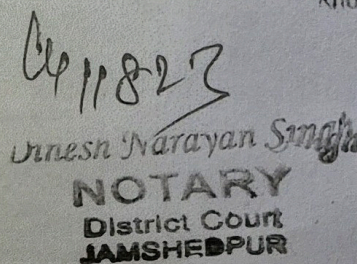 Dinesh Narayan Singh
NOTARY
District Court
JAMSHEDPUR